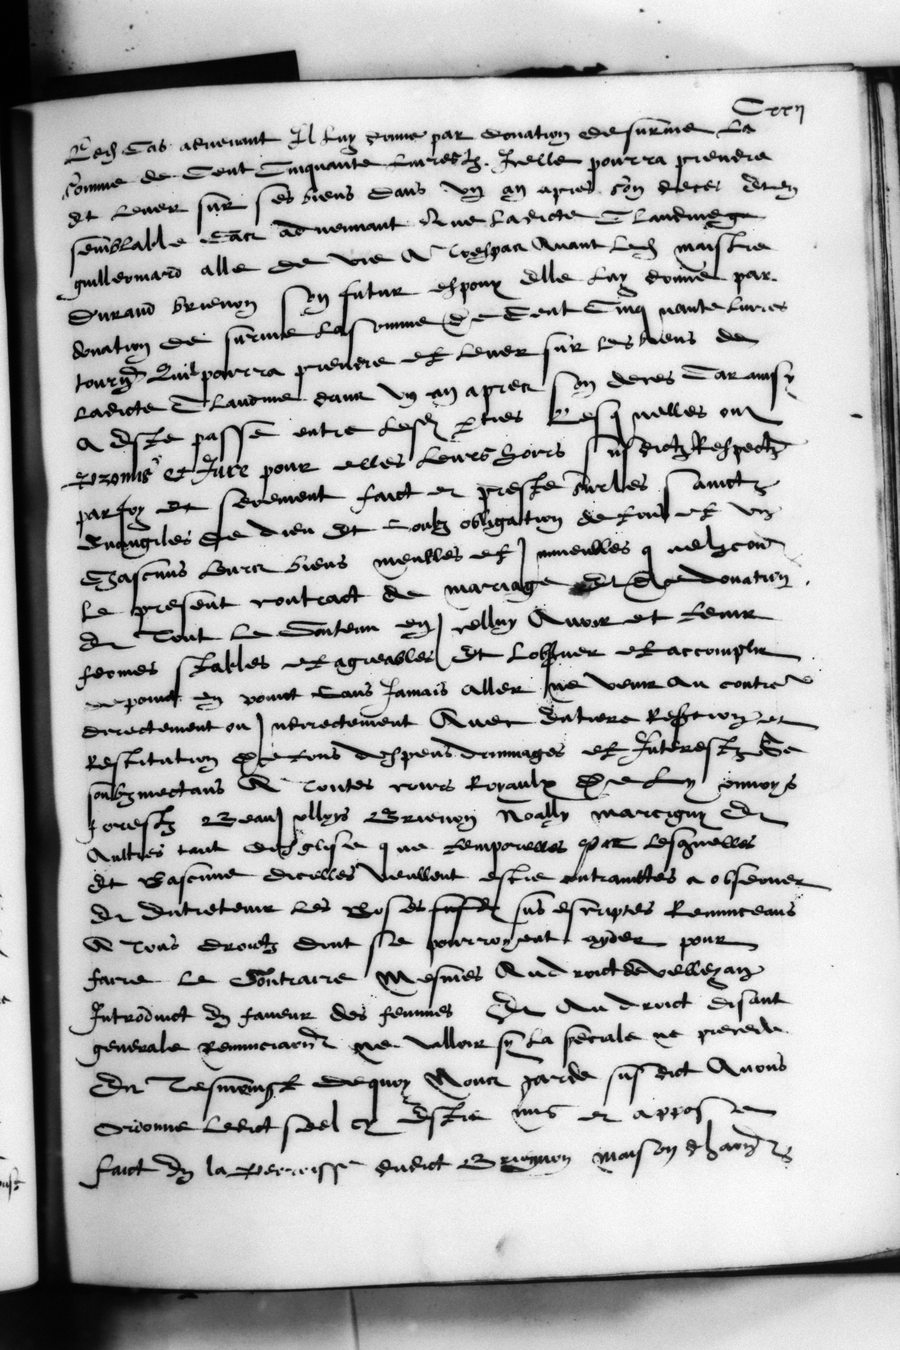 Cxxii
Led cas advenant Il luy donne par donation de survie La
somme de Cent Cinquante livres tz. Icelle pourra prendre
Et lever sur ses biens dans ung an apres son deces Et en
semblable Cas advennant Que Ladicte Claudine
guilleomard alle de vie A trespas Avant Led maistre
Durand brienon son futur espoux Elle luy donne par
donation de survie La somme de Cent Cinquante livres
tourn Quil pourra prendre et lever sur les biens de
Ladicte Claudine dans ung an apres son deces Car ainsy
A Este passe entre Lesd parties Lesquelles ont
Promis et Jure pour elles Leurs hoirs susdictz Respect
par foy et serement faict et preste sur les sainctz
Evangiles de dieu Et soubz obligation de tous et ung
Chascuns leurs biens meubles et immeubles quelzcon
Le present contract de mariage Et de donation
Et Tout Le Contenu en icelluy Avoir et tenir
fermes stables et agreables Et Lobserver et accomplir
de point en point sans Jamais aller ne venir au contre
directement ou indirectement Avec Entiere Refection et
Restitution De tous despens dommages et Interestz Se
soubzmectans A Toutes cours Royaulx De
forestz Beaujollays Brienon Noally marcigny Et
Aultres tant desglise que temporelles par Lesquelles
Et Chascune dicelles Veullent estre contrainctes a observer
Et Entretenir les choses susd sus escriptes Renunceans
A Tous droictz dont se pourroyent ayder pour
faire le Contraire Mesmes Au droict de Velleyan
Introduict En faveur des femmes Et Au droict disant
generale Renunciaon ne valloir sy La speciale ne precede
En Tesmoing de quoy Nous garde susdict Avons
Ordonne Ledict seel cy Estre mis et appose
faict En la parroisse dudict Briennon maison dhaon